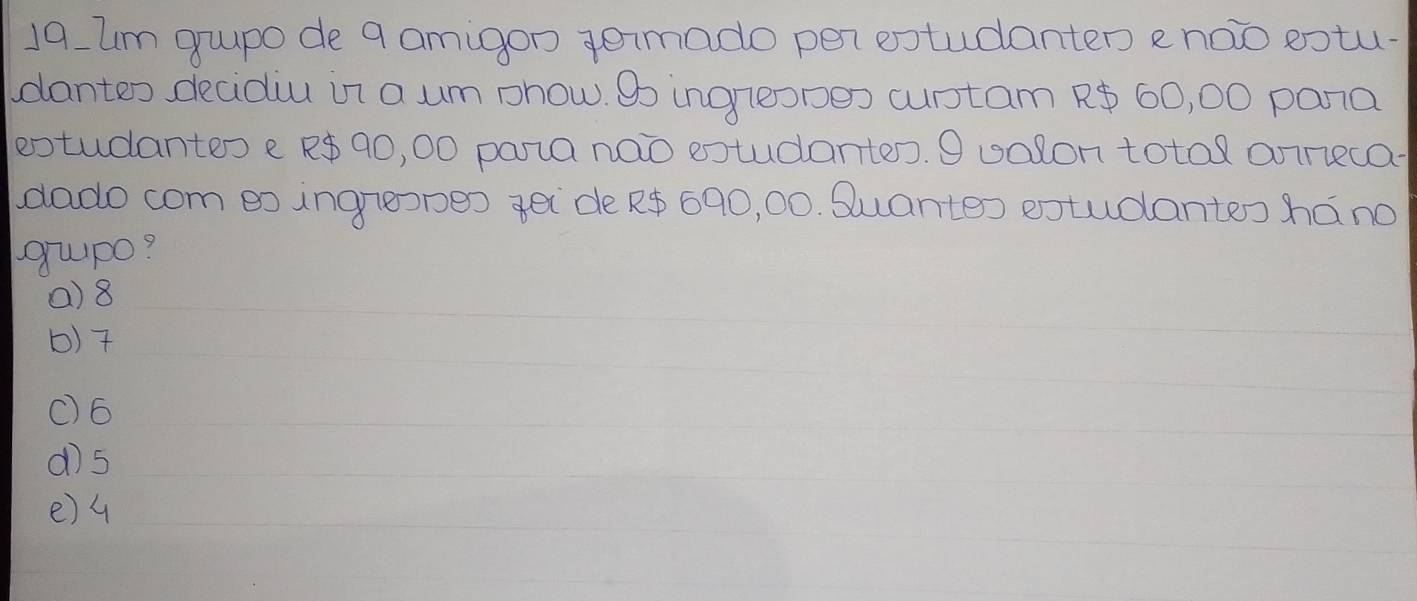 19- Um grupo de 9 amigos formado por estudantes e não estu-
dantes decidiu ir a um show. Os ingressos custam R$ 60,00 para
estudantes e R$ 90,00 para não estudantes. O valor total arreca-
dado com os ingressos foi de R$ 690,00. Quantos estudantes há no
grupo?
a) 8
b) 7
c) 6
d) 5
e) 4